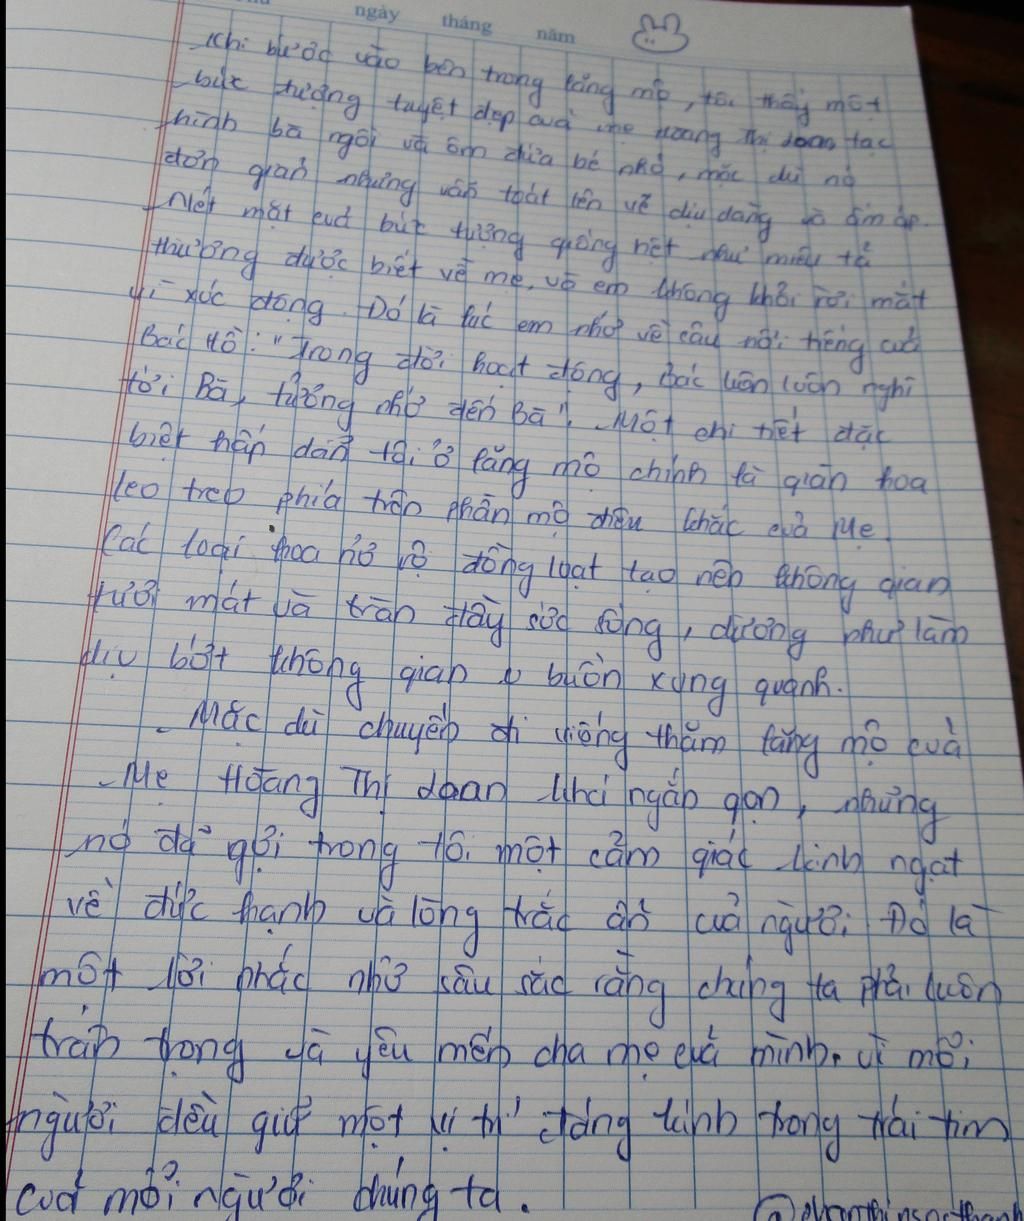 ngày tháng năm
Khi bước vào bên trong lăng mộ, tôi thấy một
bức tượng tuyệt đẹp của mẹ Hoàng Thị Loan tạc
hình bà ngồi và ôm đứa bé nhỏ, mặc dù nó
đơn giản nhưng vẫn toát lên vẽ dịu dàng và ấm áp.
Nét mặt cuả bức tượng giống hệt như miêu tả
thường được biết về mẹ, và em không khỏi rơi mắt
vì xúc động. Đó là lúc em nhớ về câu nói tiếng cuả
Bác Hồ: "Trong đời hoạt động, Bác luôn luôn nghĩ
tới Bà, tưởng nhớ đến Bà". Một chi tiết đặc
biệt hấp dẫn tôi ở lăng mộ chính là giàn hoa
leo treo phía trên phần mộ điêu khắc cuả Mẹ.
Các loại hoa nở rộ đồng loạt tạo nên không gian
tươi mát và tràn đầy sức sống, dường như làm
dịu bớt không gian u buồn xung quanh.
Mặc dù chuyến đi viếng thăm lăng mộ cuả
Mẹ Hoàng Thị Loan khá ngắn gọn, nhưng
nó đã gợi trong tôi một cảm giác kinh ngạt
về đức hạnh và lòng trắc ẩn cuả người. Đó là
một lời nhắc nhở sâu sắc rằng chúng ta phải luôn
trân trọng và yêu mến cha mẹ cuả mình, vì mỗi
người đều giữ một vị trí đáng kính trong trái tim
cuả mỗi người chúng ta.